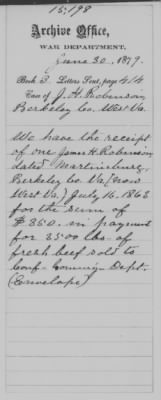 15,198
Archive Office,
WAR DEPARTMENT,
June 30, 1879.
Book 3. Letters Sent, page 414
Case of J. H. Robinson
Berkeley Co. West Va.
We have the receipt
of one James H. Robinson
dated Martinsburg,
Berkeley Co. Va. (now
West Va.) July 16. 1863
for the sum of
$350. in payment
for 3500 lbs. of
fresh beef sold to
Conf. Commy Dept.
(Envelope)